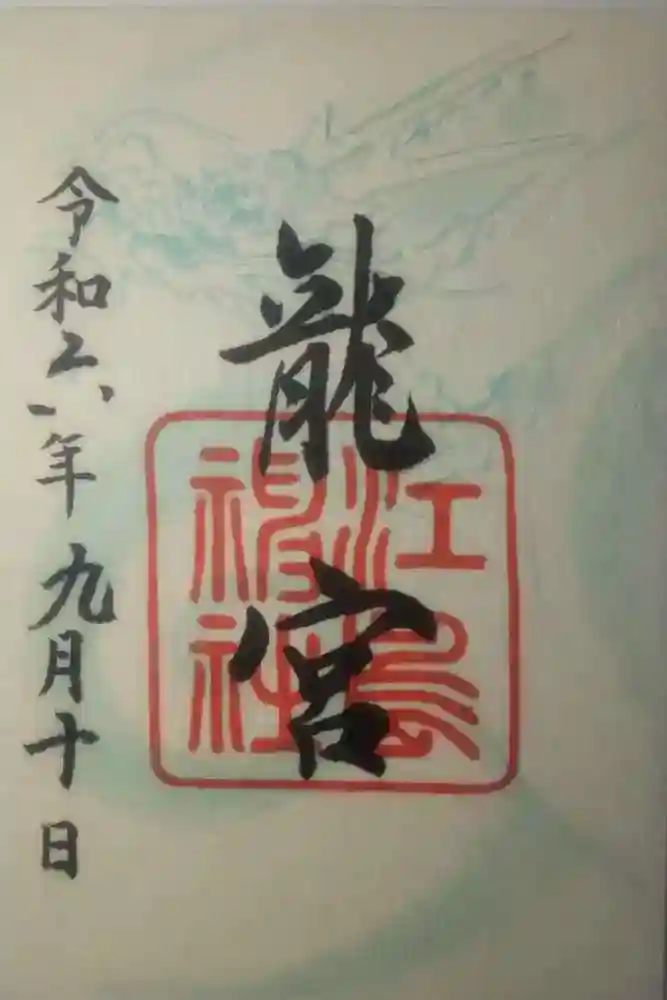 龍宮
江島
神社
令和六年九月十日